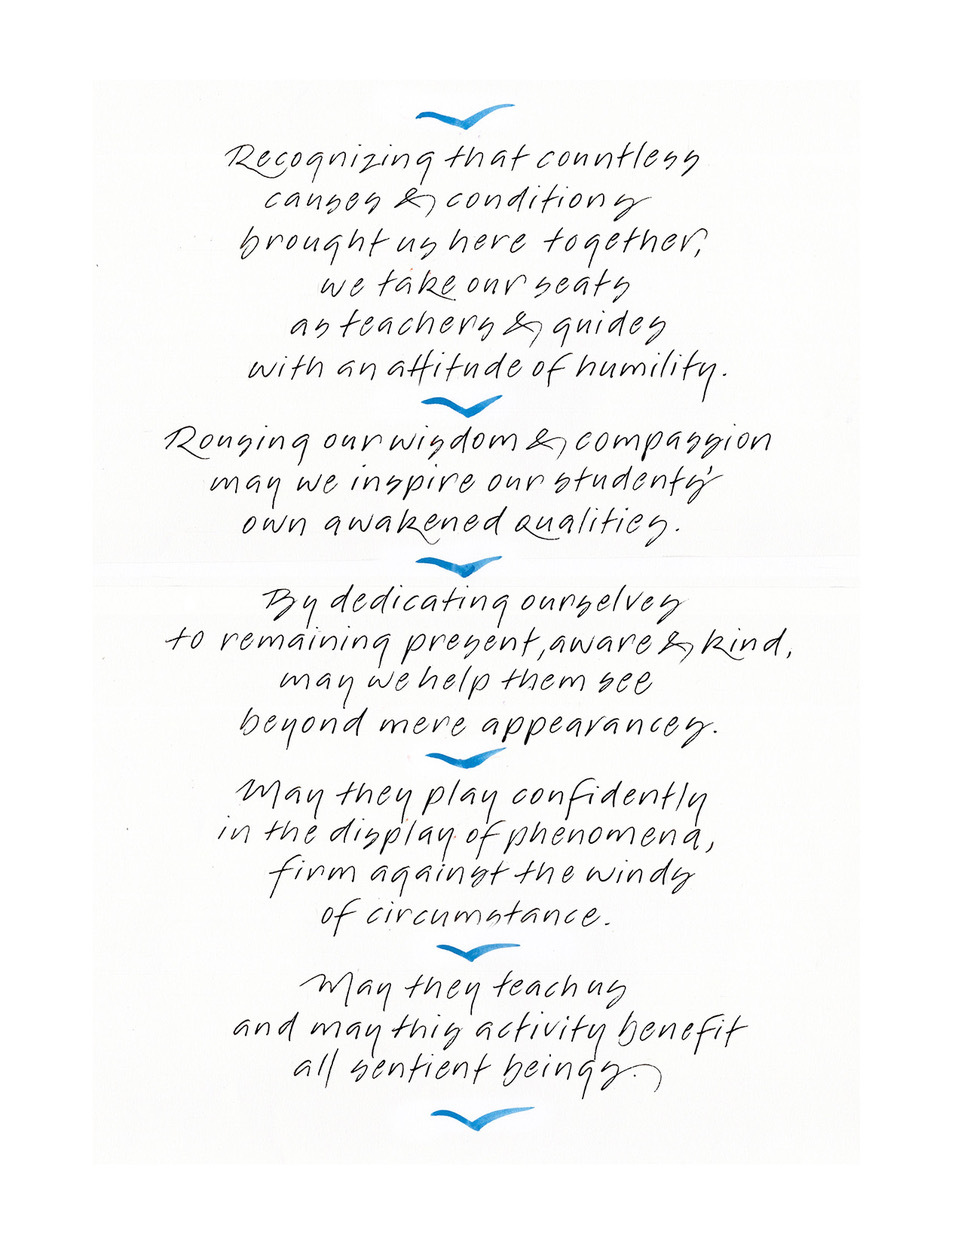 Recognizing that countless
causes & conditions
brought us here together,
we take our seats
as teachers & guides
with an attitude of humility.
Rousing our wisdom & compassion
may we inspire our students'
own awakened qualities.
By dedicating ourselves
to remaining present, aware & kind,
may we help them see
beyond mere appearances.
May they play confidently
in the display of phenomena,
firm against the winds
of circumstance.
May they teach us
and may this activity benefit
all sentient beings.